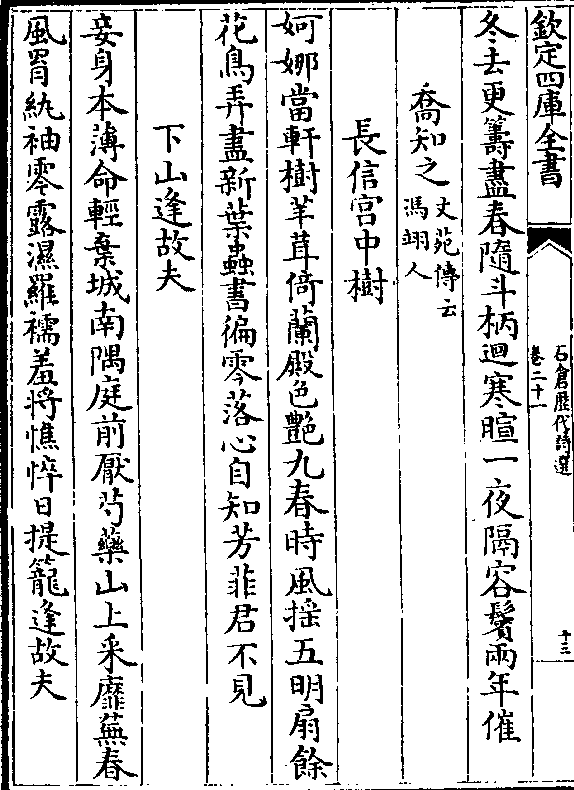 欽定四庫全書
石倉歷代詩選
卷二十一
十三
冬去更籌盡春隨斗柄迴寒暄一夜隔容鬢兩年催
喬知之文苑傳云馮翊人
長信宫中樹
婀娜當軒樹芊茸倚蘭殿色艶九春時風揺五明扇餘
花鳥弄盡新葉蟲書徧零落心自知芳菲君不見
下山逢故夫
妾身本薄命輕棄城南隅庭前厭芍藥山上采蘼蕪春
風罥紈袖零露濕羅襦羞將憔悴日提籠逢故夫